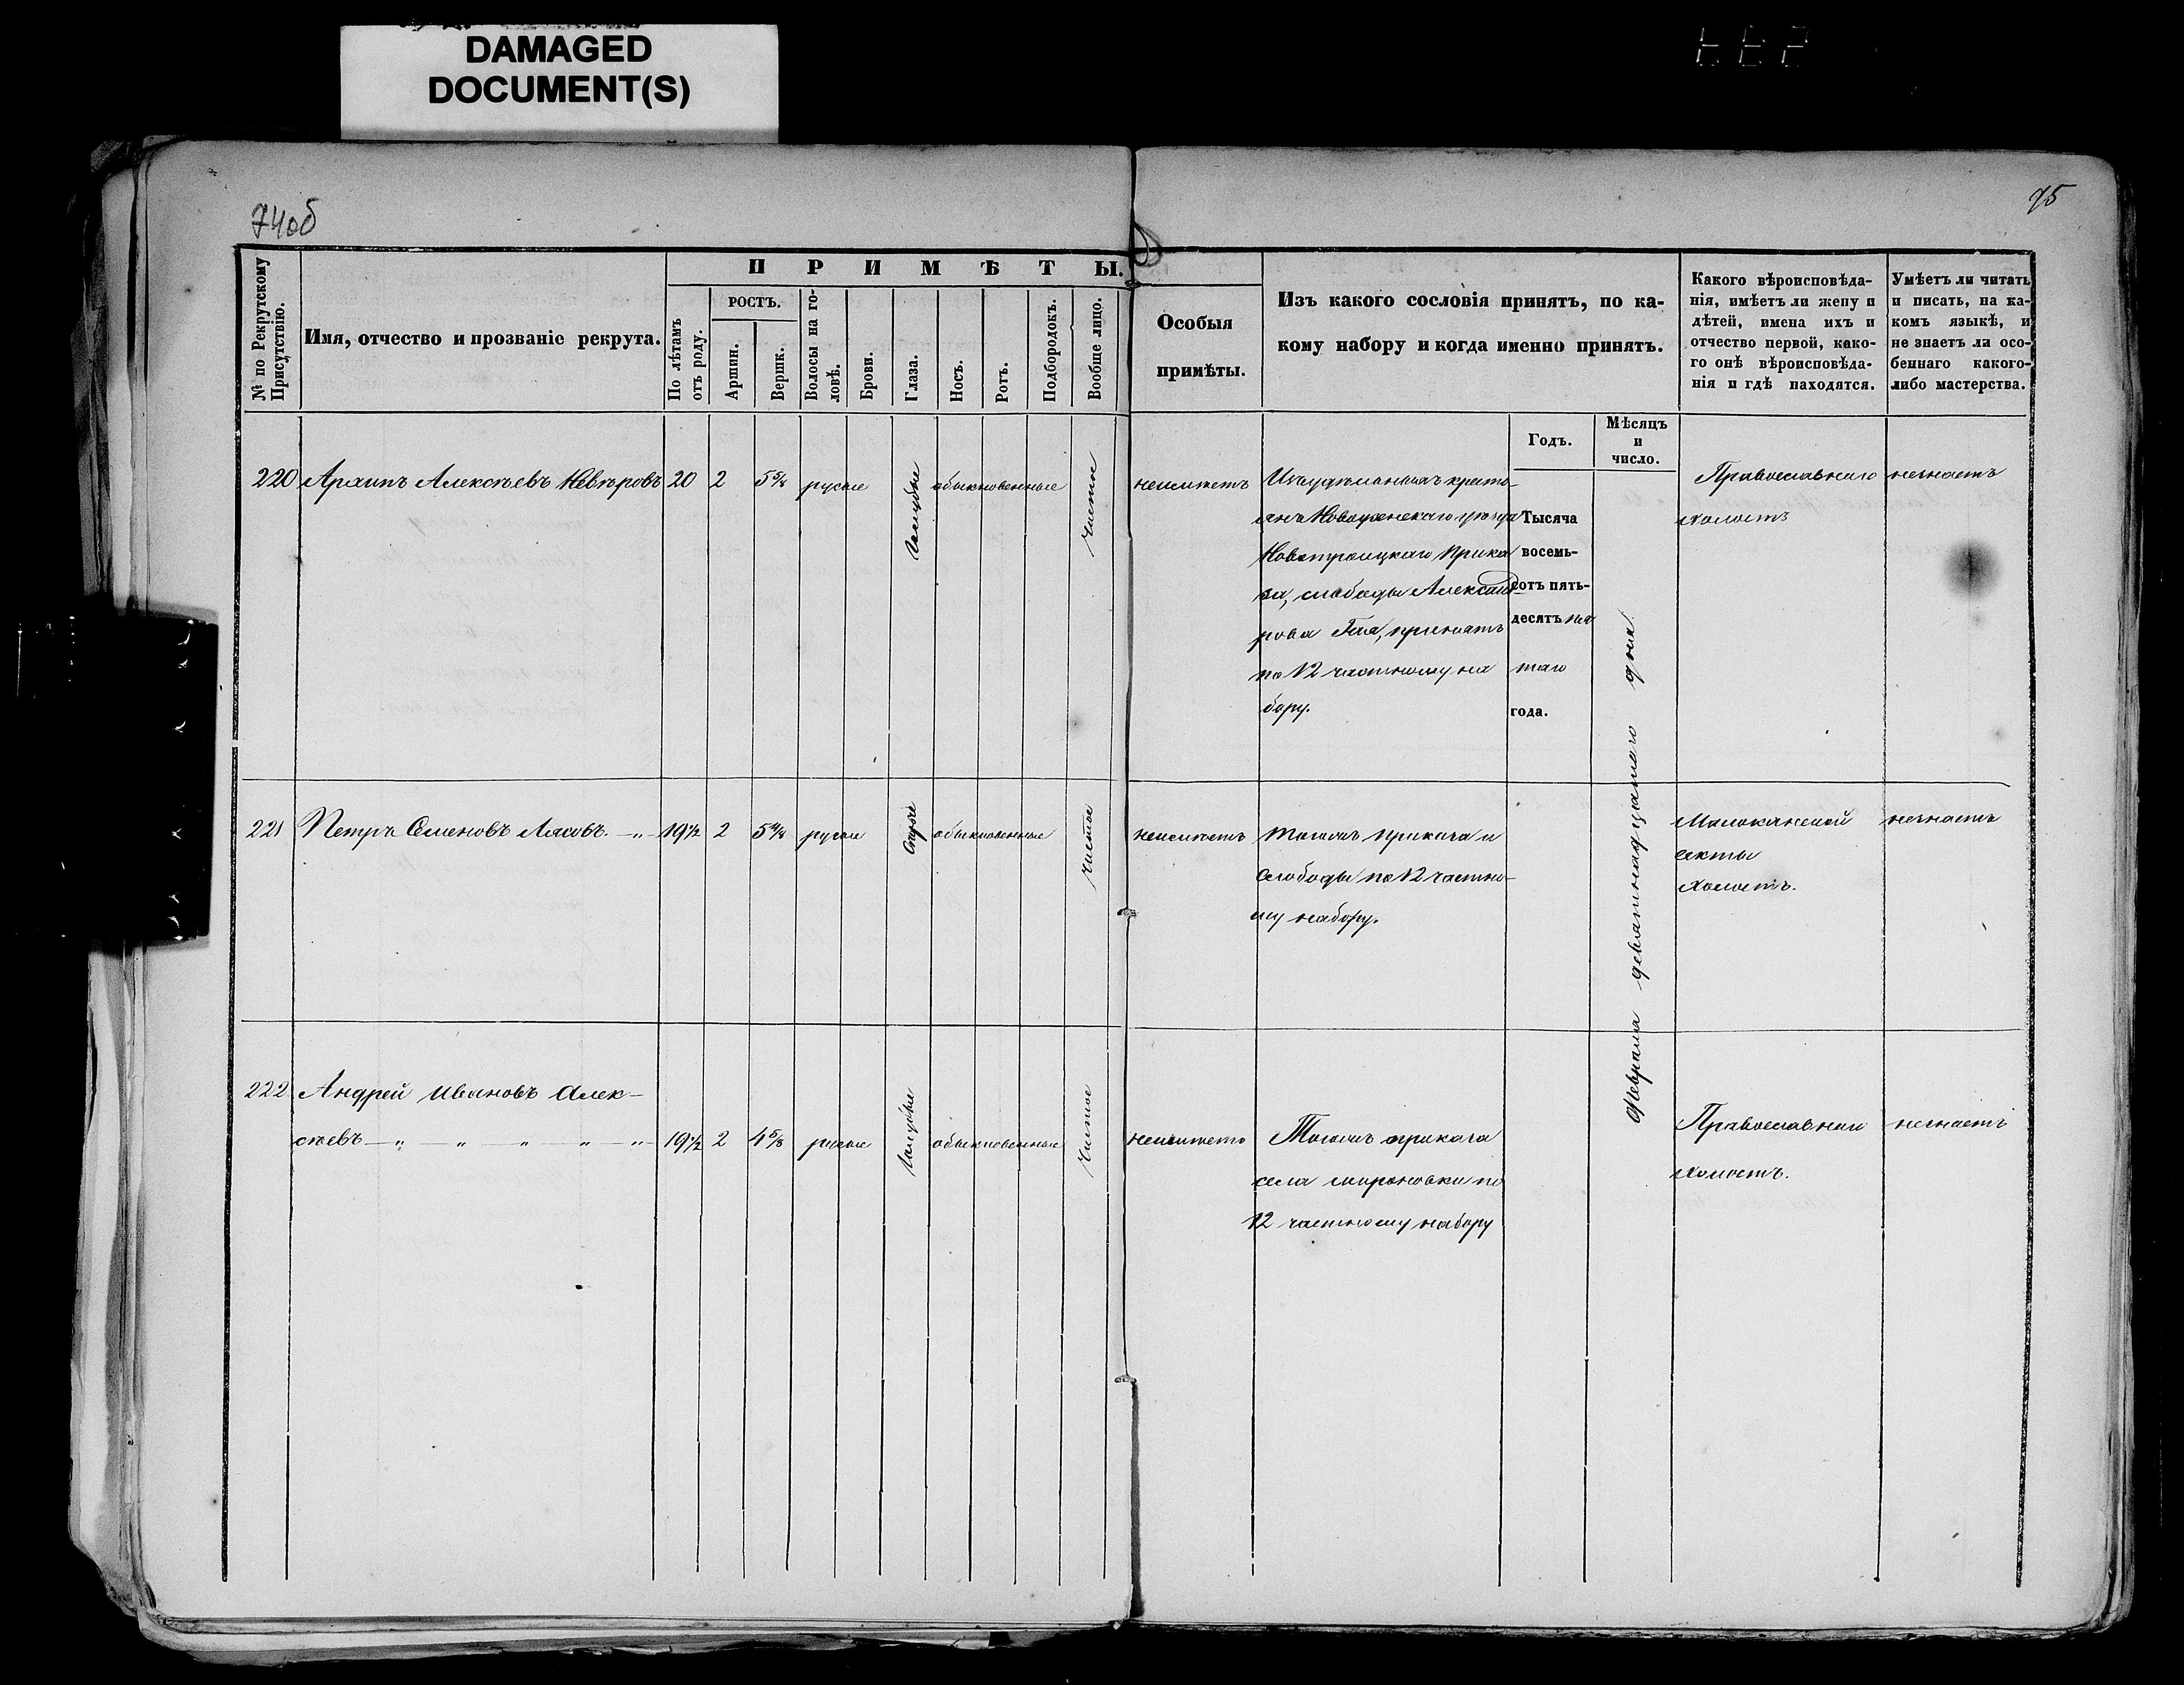 DAMAGED
DOCUMENT(S)
74об
75
№ по Рекрутскому
Присутствію.
Имя, отчество и прозваніе рекрута.
ПРИМѢТЫ.
По лѣтамъ
отъ роду.
РОСТЪ.
Аршин.
Вершк.
Волосы на го-
ловѣ.
Брови.
Глаза.
Носъ.
Ротъ.
Подбородокъ.
Вообще лицо.
Особыя
примѣты.
Изъ какого сословія принятъ, по ка-
кому набору и когда именно принятъ.
Годъ.
Мѣсяцъ
и
число.
Какого вѣроисповѣда-
нія, имѣетъ ли жену и
дѣтей, имена ихъ и
отчество первой, како-
го онѣ вѣроисповѣда-
нія и гдѣ находятся.
Умѣетъ ли читать
и писать, на ка-
комъ языкѣ, и
не знаетъ ли осо-
беннаго какого-
либо мастерства.
220 Архипъ Алексѣевъ Невѣровъ 20 2 5 5/8 русые голубые обыкновенные чистое
неимѣетъ
Изъ удѣльныхъ крестьянъ
Новоузенскаго уѣзда
Новотроицкаго Прика
за, слободы Александ-
рова Гая, принятъ
по 12 частному на
бору.
Тысяча
восемь-
сотъ пять-
десятъ пя
таго
года.
Февраля девятнадцатаго дня
Православнаго
холостъ
незнаетъ
221 Петръ Семеновъ Лясовъ. 19 1/2 2 5 4/8 русые Сѣрые обыкновенные чистое
неимѣетъ
тогожъ приказа и
слободы по 12 частно-
му набору.
Молоканской
секты
холостъ.
незнаетъ
222 Андрей Ивановъ Алек-
сѣевъ 19 1/2 2 4 5/8 русые голубые обыкновенные чистое
неимѣетъ
Тогожъ приказа
села мироновки по
12 частному набору
Православнаго
холостъ.
незнаетъ